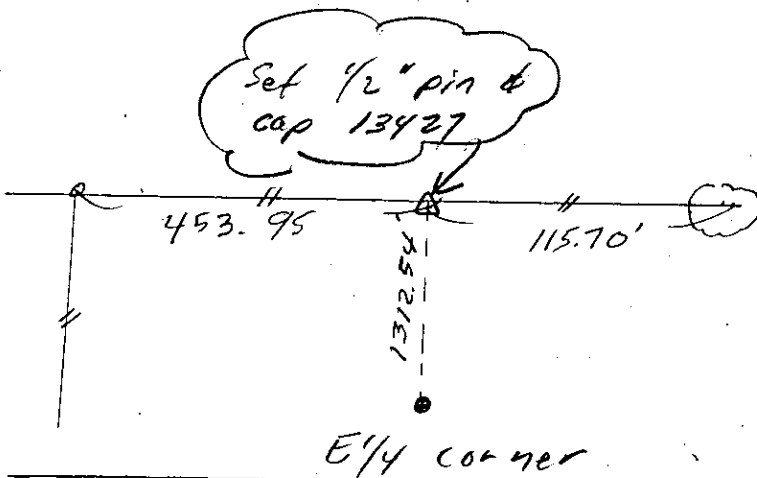 Set 1/2" pin &
cap 13427
453.95
115.70'
1312.54'
E 1/4 corner